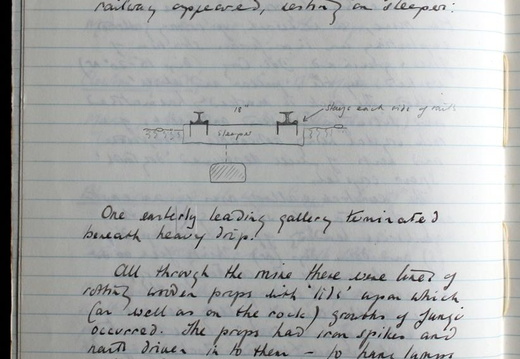 railway appeared, resting on sleeper:
18"
each side of rail
sleeper
One easterly leading gallery terminated
beneath heavy drip.
All through the mine there were lines of
rotting wooden props with 'lids' upon which
(as well as on the rock) growths of fungi
occurred. The props had iron spikes and
nails driven in to them – to hang lamps